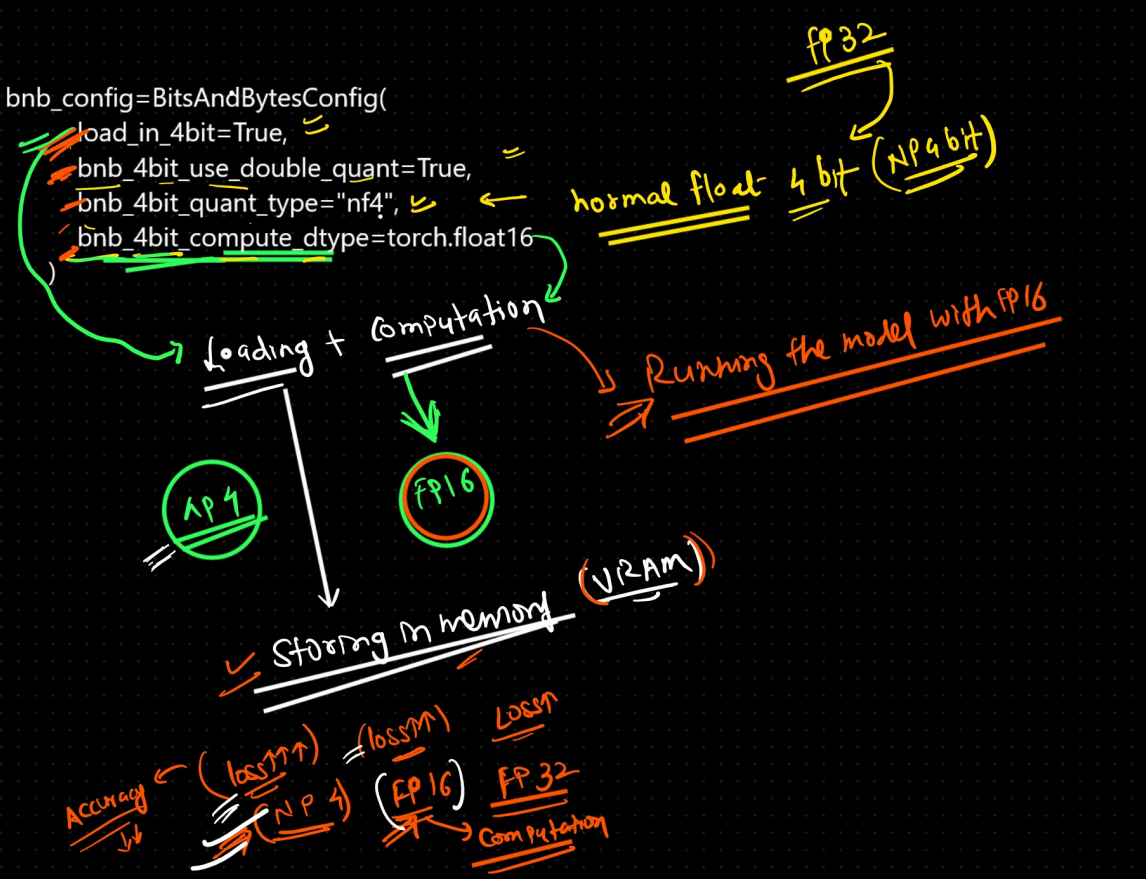 fP32
bnb_config=BitsAndBytesConfig(
load_in_4bit=True,
bnb_4bit_use_double_quant=True,
bnb_4bit_quant_type="nf4",
bnb_4bit_compute_dtype=torch.float16
)
normal float 4 bit (NP4bit)
Loading + Computation
Running the model with FP16
NP4
FP16
Storing in memory (VRAM)
(loss↑↑↑) (loss↑↑) Loss↑
Accuracy ↓↓
(NP4) (FP16) FP32
Computation